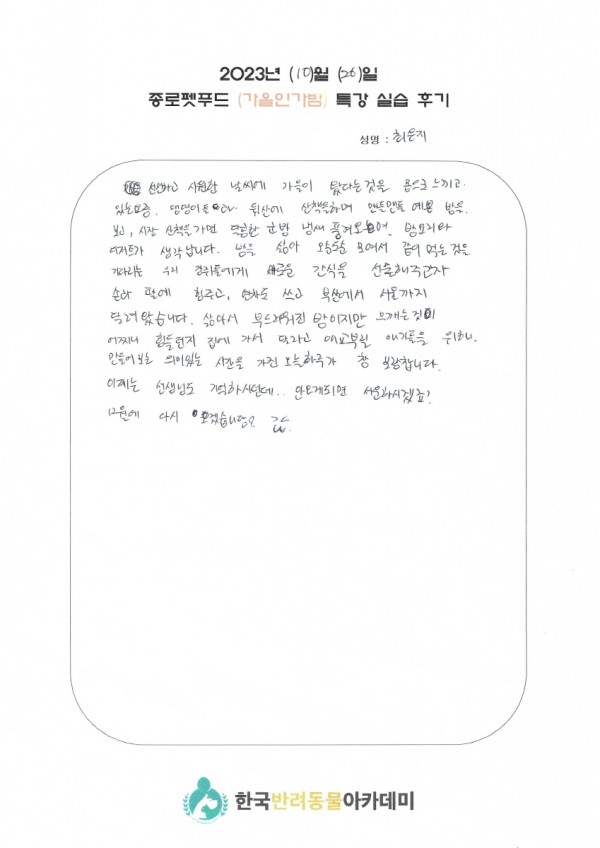 2023년 (10)월 (26)일
종로펫푸드 (가을인가밤) 특강 실습 후기
성명 : 최은지
선선하고 시원한 날씨에 가을이 왔다는것을 몸으로 느끼고
있는요즘. 댕댕이들 뒷산에 산책을하며 맨들맨들 예쁜 밤을
보고, 시장 산책을가면 달달한 군밤 냄새 풍겨오며, 밤요리와
디저트가 생각납니다. 밤을 삶아 오손도손 모여서 같이 먹는것을
기다리는 우리 강쥐들에게 새로운 간식을 선순해주고자
손과 팔에 힘주고, 쓰고 부산에서 서울까지
달려왔습니다. 삶아서 부드러워진 밤이지만 으깨는것이
어찌나 힘들던지 집에 가서 애교부릴 애기들을 위하니
만들어보는 의미있는 시간을 가진 오늘하루가 참 보람합니다.
이제는 선생님도 기억하시던데.. 안오게되면 서운하시겠죠?
12월에 다시 오겠습니다
한국반려동물아카데미